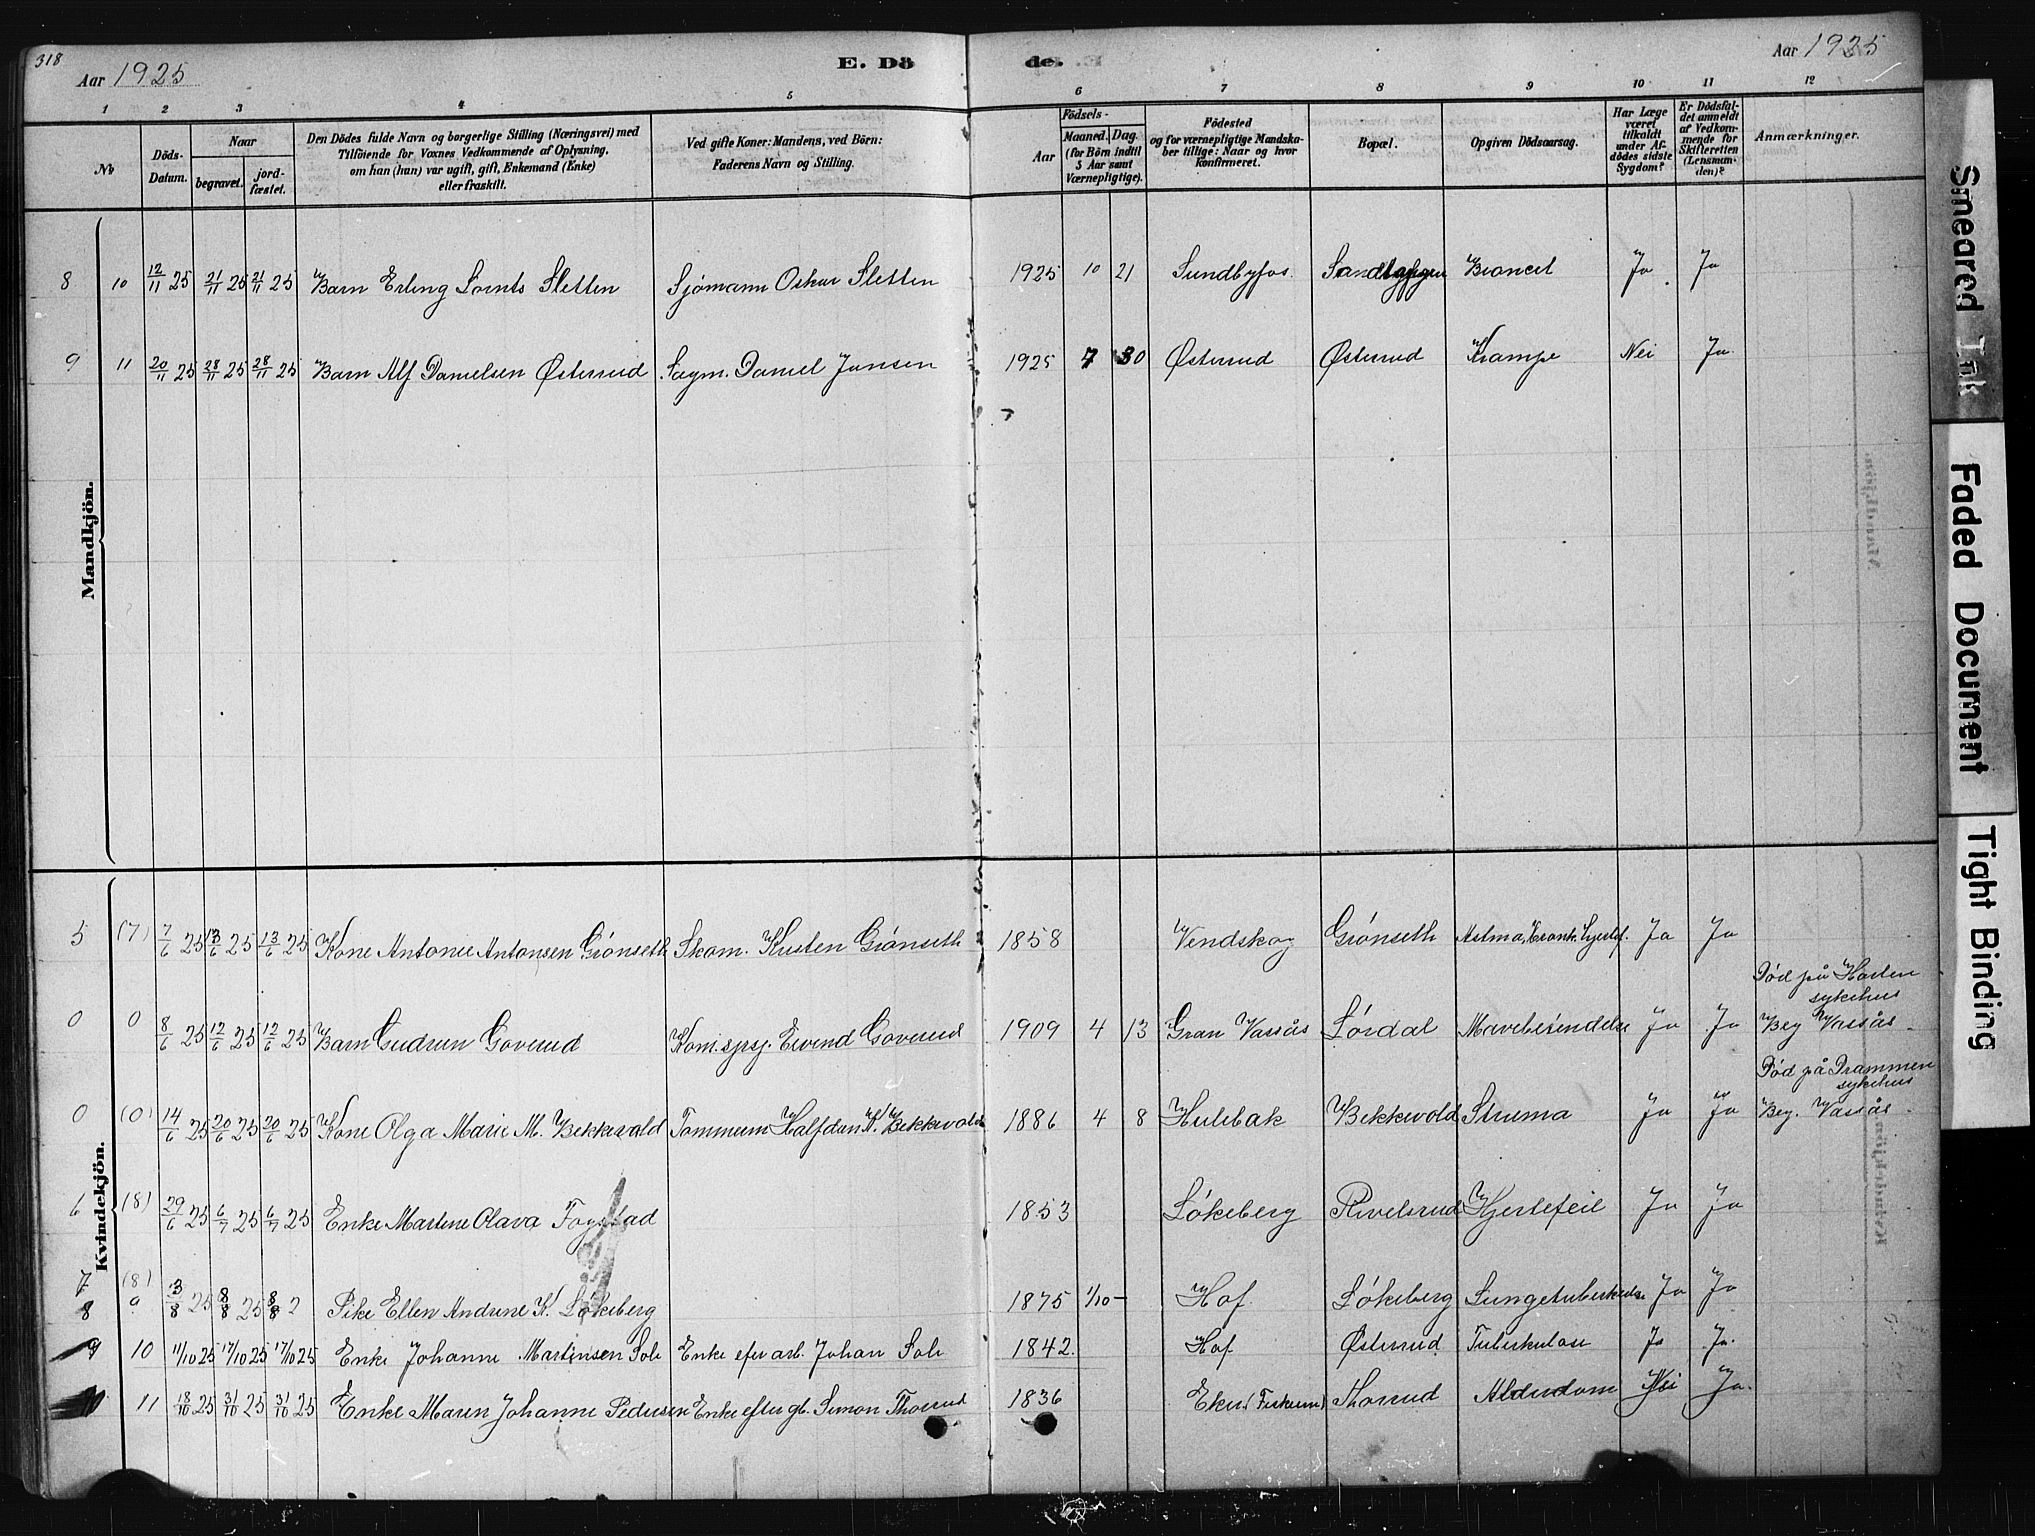 318
Aar 1925
E. Dö
de.
Aar 1925
1 2 3 4 5 6 7 8 9 10 11 12
No
Döds-Datum.
Naar
begravet.
jord-fæstet.
Den Dödes fulde Navn og borgerlige Stilling (Næringsvei) med
Tilföiende for Voxnes Vedkommende af Oplysning,
om han (hun) var ugift, gift, Enkemand (Enke)
eller fraskilt.
Ved gifte Koner: Mandens, ved Börn:
Faderens Navn og Stilling.
Födsels-
Aar
Maaned. Dag.
(for Börn indtil
5 Aar samt
Værnepligtige).
Födested
og for værnepligtige Mandska-
ber tillige: Naar og hvor
konfirmeret.
Bopæl.
Opgiven Dödsaarsag.
Har Læge
været
tilkaldt
under Af-
dödes sidste
Sygdom?
Er Dödsfal-
det anmeldt
af Vedkom-
mende for
Skifteretten
(Lensman-
den)?
Anmærkninger.
Mandkjön.
8 10 12/11 25 21/11 25 21/11 25 Barn Erling Lornts Sletten Sjømann Oskar Sletten 1925 10 21 Sundbyfos. Ja Ja
9 11 20/11 25 28/11 25 28/11 25 Barn Alf Danielsen Østerud Daniel Jansen 1925 7 30 Østerud Østerud Krampe Nei Ja
Kvindekjön.
5 (7) 7/6 25 13/6 25 13/6 25 Kone Antonie Antonsen Grønseth Skom. Kristen Grønseth 1858 Vendskog Grønseth Astma, Ja Ja
Død på Horten
sykehus
0 0 8/6 25 12/6 25 12/6 25 Barn Gudrun Goverud Eivend Goverud 1909 4 13 Gran Vassås Lørdal Ja Ja Beg Vassås
Død på Drammen
sykehus
0 (0) 14/6 25 20/6 25 20/6 25 Kone Olga Marie M. Bekkevold Tømmerm Halfdan K. Bekkevold 1886 4 8 Hulebak Bekkevold Struma Ja Ja Beg. Vassås
6 (8) 29/6 25 6/7 25 6/7 25 Enke Martine Olava Fogstad 1853 Løkeberg Rivelsrud Hjertefeil Ja Ja
7 (8)
8 9 3/8 25 8/8 25 8/8 2 Pike Ellen Andrine K. Løkeberg 1875 1/10 – Hof Løkeberg Lungetuberkulose Ja Ja
9 10 11/10 25 17/10 25 17/10 25 Enke Johanne Martinsen Sole Enke efter arb. Johan Sole 1842 Hof Østerud Tuberkulose Ja Ja
10 11 18/10 25 31/10 25 31/10 25 Enke Maren Johanne Pedersen Enke efter gb. Simon Thorrud 1836 Eker (Fiskum) Thorrud Alderdom Nei Ja
Smeared Ink
Faded Document
Tight Binding